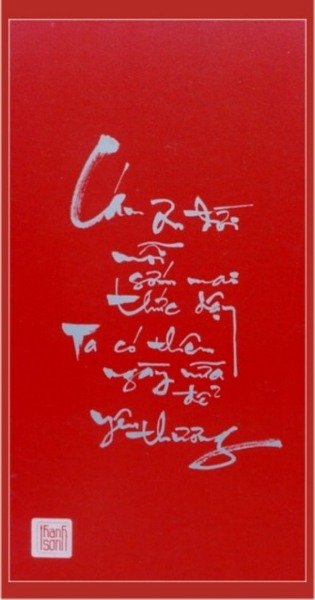 Cám ơn đời
mỗi
sớm mai
thức dậy
Ta có thêm
ngày nữa
để
yêu thương
thanh
sơn